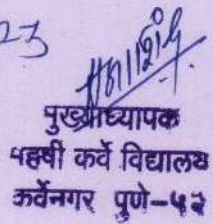 23
मुख्याध्यापक
महर्षी कर्वे विद्यालय
कर्वेनगर पुणे-५२